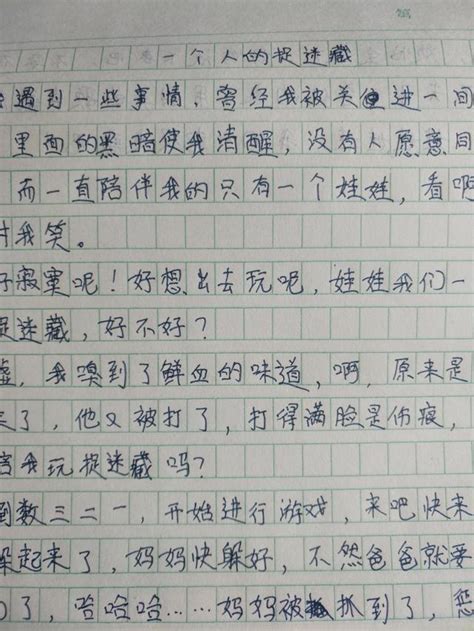 一个人的捉迷藏
遇到一些事情，曾经我被关进一间
里面的黑暗使我清醒，没有人愿意同
而一直陪伴我的只有一个娃娃，看啊
对我笑。
好寂寞呢！好想出去玩呢，娃娃我们一
捉迷藏，好不好？
嘘，我嗅到了鲜血的味道，啊，原来是
来了，他又被打了，打得满脸是伤痕，
陪我玩捉迷藏吗？
倒数三二一，开始进行游戏，来吧快来
躲起来了，妈妈快躲好，不然爸爸就要
了，哈哈哈……妈妈被抓到了，您